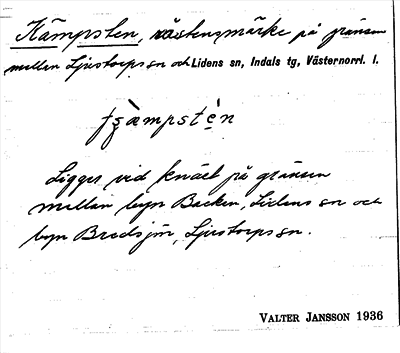 Kämpsten, råstensmärke på gränsen
mellen Ljustorps sn och Lidens sn, Indals tg, Västernorrl. l.
Ligger vid knäet på gränsen
mellan byn Backen, Lidens sn och
byn Bredsjön, Ljustorps sn.
VALTER JANSSON 1936